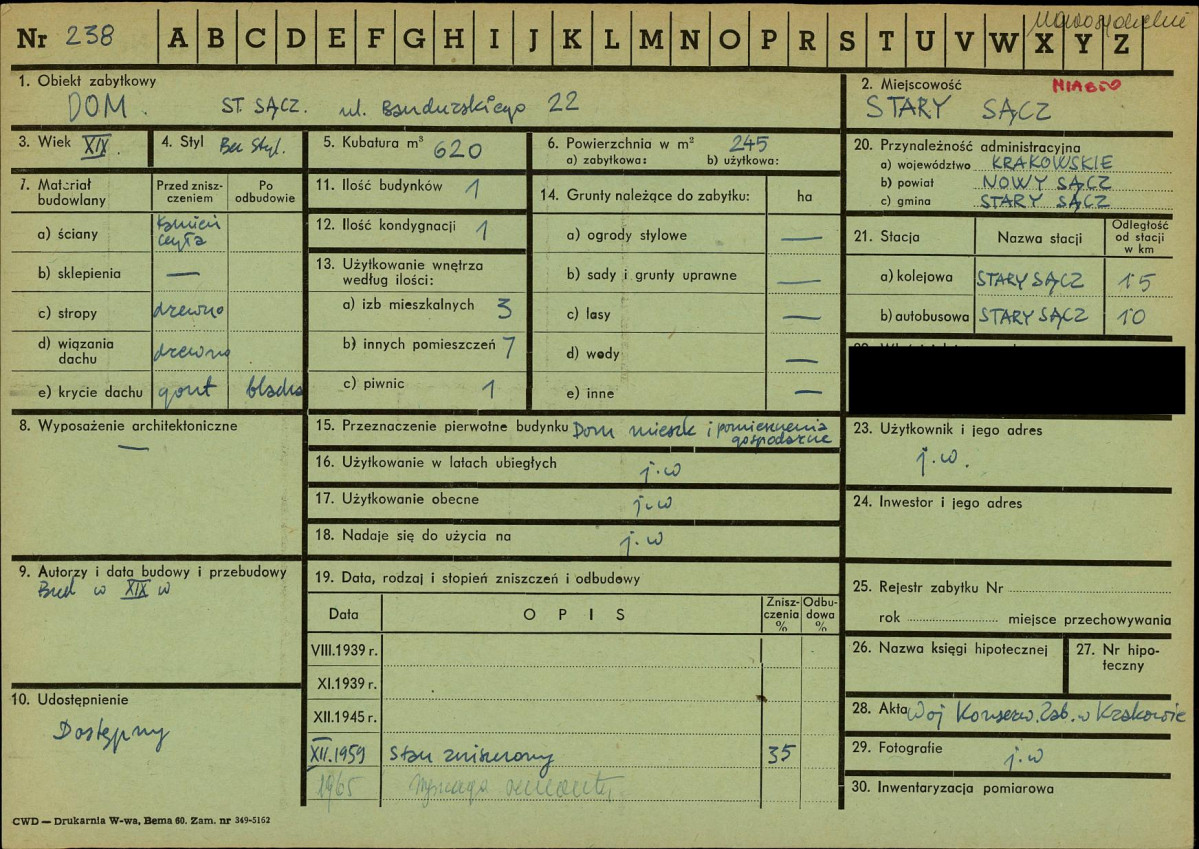 Nowosądeckie
Nr 238 A B C D E F G H I J K L M N O P R S T U V W X Y Z
1. Obiekt zabytkowy
DOM. ST. SĄCZ. ul. Bandurskiego 22
2. Miejscowość MIASTO
STARY SĄCZ
3. Wiek XIX.
4. Styl Bez Styl.
5. Kubatura m³ 620
6. Powierzchnia w m² 245
a) zabytkowa: b) użytkowa:
20. Przynależność administracyjna
a) województwo KRAKOWSKIE
b) powiat NOWY SĄCZ
c) gmina STARY SĄCZ
7. Materiał budowlany
Przed zniszczeniem
Po odbudowie
a) ściany kamień cegła
b) sklepienia —
c) stropy drewno
d) wiązania dachu drewno
e) krycie dachu gont blacha
11. Ilość budynków 1
12. Ilość kondygnacji 1
13. Użytkowanie wnętrza według ilości:
a) izb mieszkalnych 3
b) innych pomieszczeń 7
c) piwnic 1
14. Grunty należące do zabytku: ha
a) ogrody stylowe —
b) sady i grunty uprawne —
c) lasy —
d) wody —
e) inne —
21. Stacja Nazwa stacji Odległość od stacji w km
a) kolejowa STARY SĄCZ 15
b) autobusowa STARY SĄCZ 10
8. Wyposażenie architektoniczne
—
15. Przeznaczenie pierwotne budynku Dom mieszk i pomieszczenia
gospodarcze
16. Użytkowanie w latach ubiegłych j.w
17. Użytkowanie obecne j.w
18. Nadaje się do użycia na j.w
23. Użytkownik i jego adres
j.w.
24. Inwestor i jego adres
9. Autorzy i data budowy i przebudowy
Bud w XIX w
19. Data, rodzaj i stopień zniszczeń i odbudowy
Data OPIS Zniszczenia % Odbudowa %
VIII.1939 r.
XI.1939 r.
XII.1945 r.
XII.1959 Stan zniszczony 35
1965 Wymaga remontu,
25. Rejestr zabytku Nr
rok miejsce przechowywania
26. Nazwa księgi hipotecznej
27. Nr hipoteczny
10. Udostępnienie
Dostępny
28. Akta Woj Konserw. Zab. w Krakowie
29. Fotografie j.w
30. Inwentaryzacja pomiarowa
CWD — Drukarnia W-wa, Bema 60. Zam. nr 349-5162